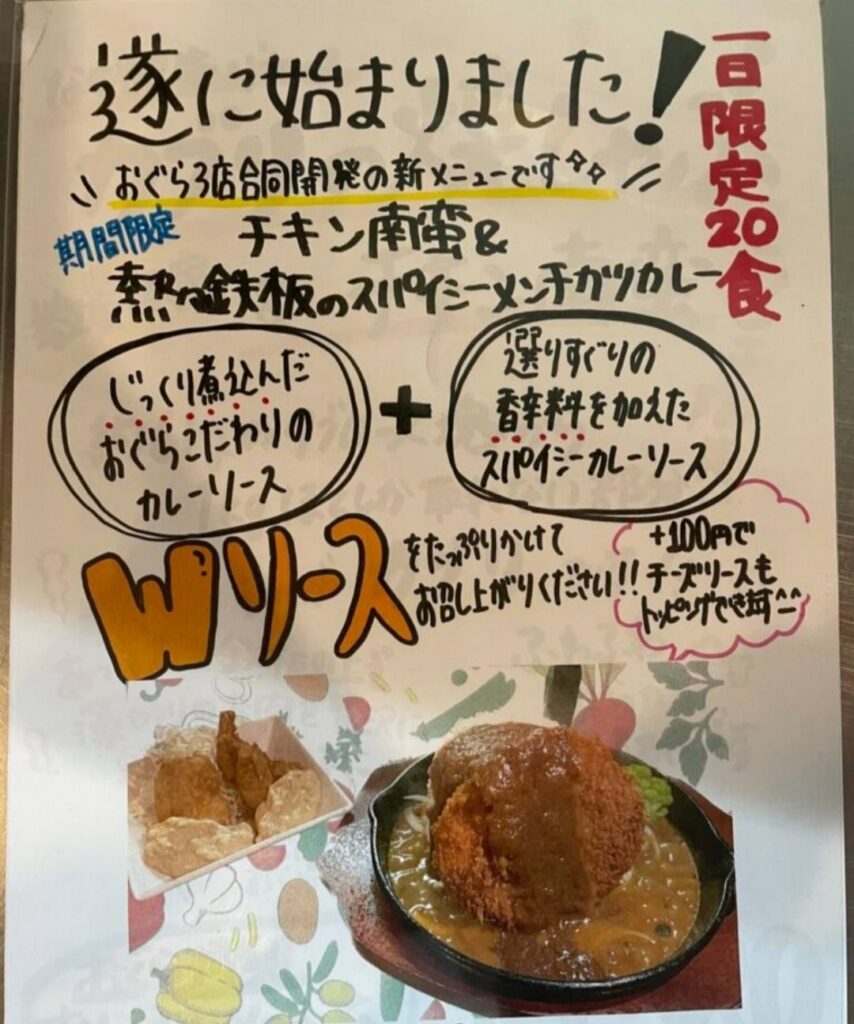 遂に始まりました!
一日限定20食
おぐら3店合同開発の新メニューです
期間限定
チキン南蛮&
熱々鉄板のスパイシーメンチカツカレー
じっくり煮込んだ
おぐらこだわりの
カレーソース
+
選りすぐりの
香辛料を加えた
スパイシーカレーソース
Wソース
をたっぷりかけて
お召し上がりください!!
+100円で
チーズソースも
トッピングでき茻^^